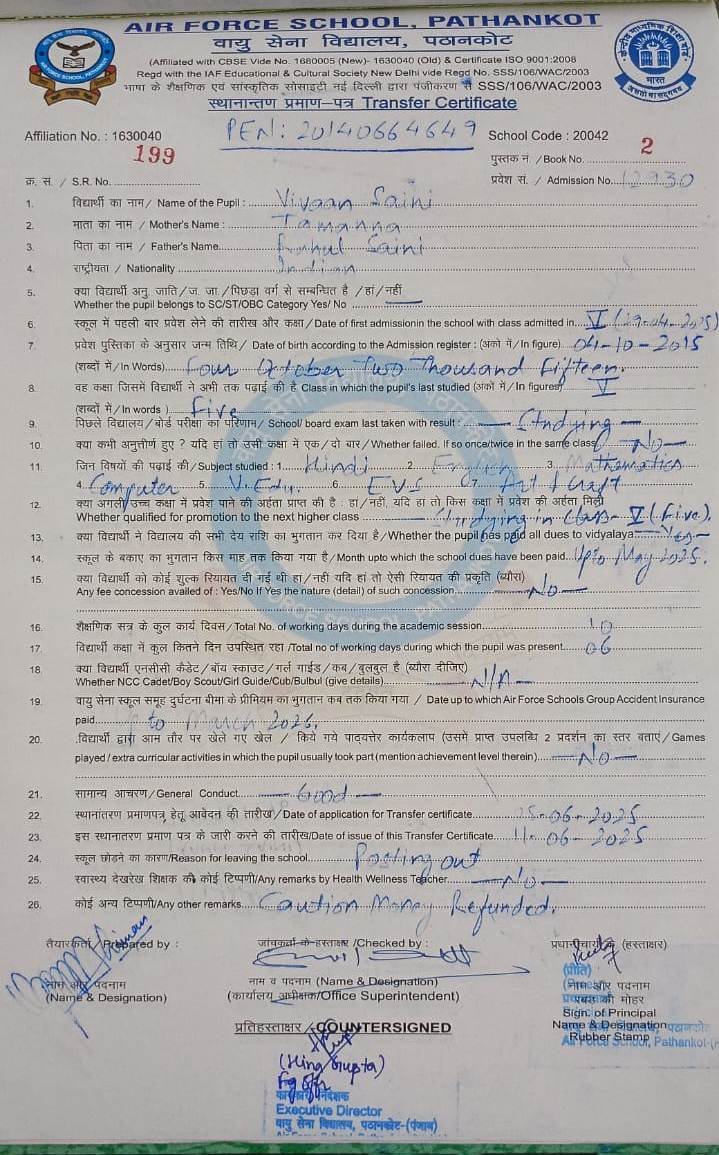 AIR FORCE SCHOOL, PATHANKOT
वायु सेना विद्यालय, पठानकोट
(Affiliated with CBSE Vide No. 1680005 (New)- 1630040 (Old) & Certificate ISO 9001:2008
Regd with the IAF Educational & Cultural Society New Delhi vide Regd No. SSS/106/WAC/2003
भाषा के शैक्षणिक एवं सांस्कृतिक सोसाइटी नई दिल्ली द्वारा पंजीकरण सं SSS/106/WAC/2003
स्थानान्तण प्रमाण-पत्र Transfer Certificate
Affiliation No. : 1630040 PEN: 20140664649 School Code : 20042
199 पुस्तक नं. /Book No. 2
क्र. सं. / S.R. No. प्रवेश सं. / Admission No. 12930
1. विद्यार्थी का नाम / Name of the Pupil : Vivaan Saini
2. माता का नाम / Mother's Name : Tamanna
3. पिता का नाम / Father's Name Rahul Saini
4. राष्ट्रीयता / Nationality Indian
5. क्या विद्यार्थी अनु. जाति / ज. जा. / पिछड़ा वर्ग से सम्बन्धित है / हां / नहीं
Whether the pupil belongs to SC/ST/OBC Category Yes/ No
6. स्कूल में पहली बार प्रवेश लेने की तारीख और कक्षा / Date of first admissionin the school with class admitted in V (29-04-2025)
7. प्रवेश पुस्तिका के अनुसार जन्म तिथि / Date of birth according to the Admission register : (अको में/In figure) 04-10-2015
(शब्दों में/In Words) Four October Two Thousand Fifteen.
8. वह कक्षा जिसमें विद्यार्थी ने अभी तक पढ़ाई की है Class in which the pupil's last studied (अकों में/In figures) V
(शब्दों में/In words ) Five
9. पिछले विद्यालय/बोर्ड परीक्षा का परिणाम/ School/ board exam last taken with result : Studying
10. क्या कभी अनुत्तीर्ण हुए ? यदि हां तो उसी कक्षा में एक/दो बार/Whether failed. If so once/twice in the same class No
11. जिन विषयों की पढ़ाई की/Subject studied : 1 Hindi 2. English 3. Mathematics
4. Computer 5. V. Edu. 6. EVS 7. Art & Craft
12. क्या अगली उच्च कक्षा में प्रवेश पाने की अर्हता प्राप्त की है : हां/नहीं, यदि हा तो किस कक्षा में प्रवेश की अर्हता मिली
Whether qualified for promotion to the next higher class Studying in Class- V (Five).
13. क्या विद्यार्थी ने विद्यालय की सभी देय राशि का भुगतान कर दिया है/Whether the pupil has paid all dues to vidyalaya Yes
14. स्कूल के बकाए का भुगतान किस माह तक किया गया है/Month upto which the school dues have been paid Upto May 2025.
15. क्या विद्यार्थी को कोई शुल्क रियायत दी गई थी हां/नहीं यदि हां तो ऐसी रियायत की प्रकृति (ब्यौरा)
Any fee concession availed of : Yes/No If Yes the nature (detail) of such concession No
16. शैक्षणिक सत्र के कुल कार्य दिवस/Total No. of working days during the academic session 10
17. विद्यार्थी कक्षा में कुल कितने दिन उपस्थित रहा /Total no of working days during which the pupil was present 06
18. क्या विद्यार्थी एनसीसी कैडेट/बॉय स्काउट/गर्ल गाईड/कब/बुलबुल है (ब्यौरा दीजिए)
Whether NCC Cadet/Boy Scout/Girl Guide/Cub/Bulbul (give details) N/A
19. वायु सेना स्कूल समूह दुर्घटना बीमा के प्रीमियम का भुगतान कब तक किया गया / Date up to which Air Force Schools Group Accident Insurance
paid to March 2026.
20. .विद्यार्थी द्वारा आम तौर पर खेले गए खेल / किये गये पाठ्यत्तेर कार्यकलाप (उसमें प्राप्त उपलब्धि 2 प्रदर्शन का स्तर बताएं/Games
played / extra curricular activities in which the pupil usually took part (mention achievement level therein) No
21. सामान्य आचरण/General Conduct Good
22. स्थानांतरण प्रमाणपत्र हेतू आवेदन की तारीख/Date of application for Transfer certificate 05-06-2025
23. इस स्थानातरण प्रमाण पत्र के जारी करने की तारीख/Date of issue of this Transfer Certificate 11-06-2025
24. स्कूल छोडने का कारण/Reason for leaving the school Posting out
25. स्वास्थ्य देखरेख शिक्षक की कोई टिप्पणी/Any remarks by Health Wellness Teacher No
26. कोई अन्य टिप्पणी/Any other remarks Caution Money Refunded.
तैयारकर्ता /Prepared by : जांचकर्ता के हस्ताक्षर /Checked by : प्रधानाचार्य के (हस्ताक्षर)
(प्रीति)
नाम और पदनाम नाम व पदनाम (Name & Designation) (नाम और पदनाम
(Name & Designation) (कार्यालय अधीक्षक/Office Superintendent) एवं की मोहर
Sign. of Principal
प्रतिहस्ताक्षर / COUNTERSIGNED Name & Designation
Rubber Stamp
Air Force School, Pathankot
(Hina Gupta)
Fg Offr
कार्यकारी निदेशक
Executive Director
वायु सेना विद्यालय, पठानकोट-(पंजाब)